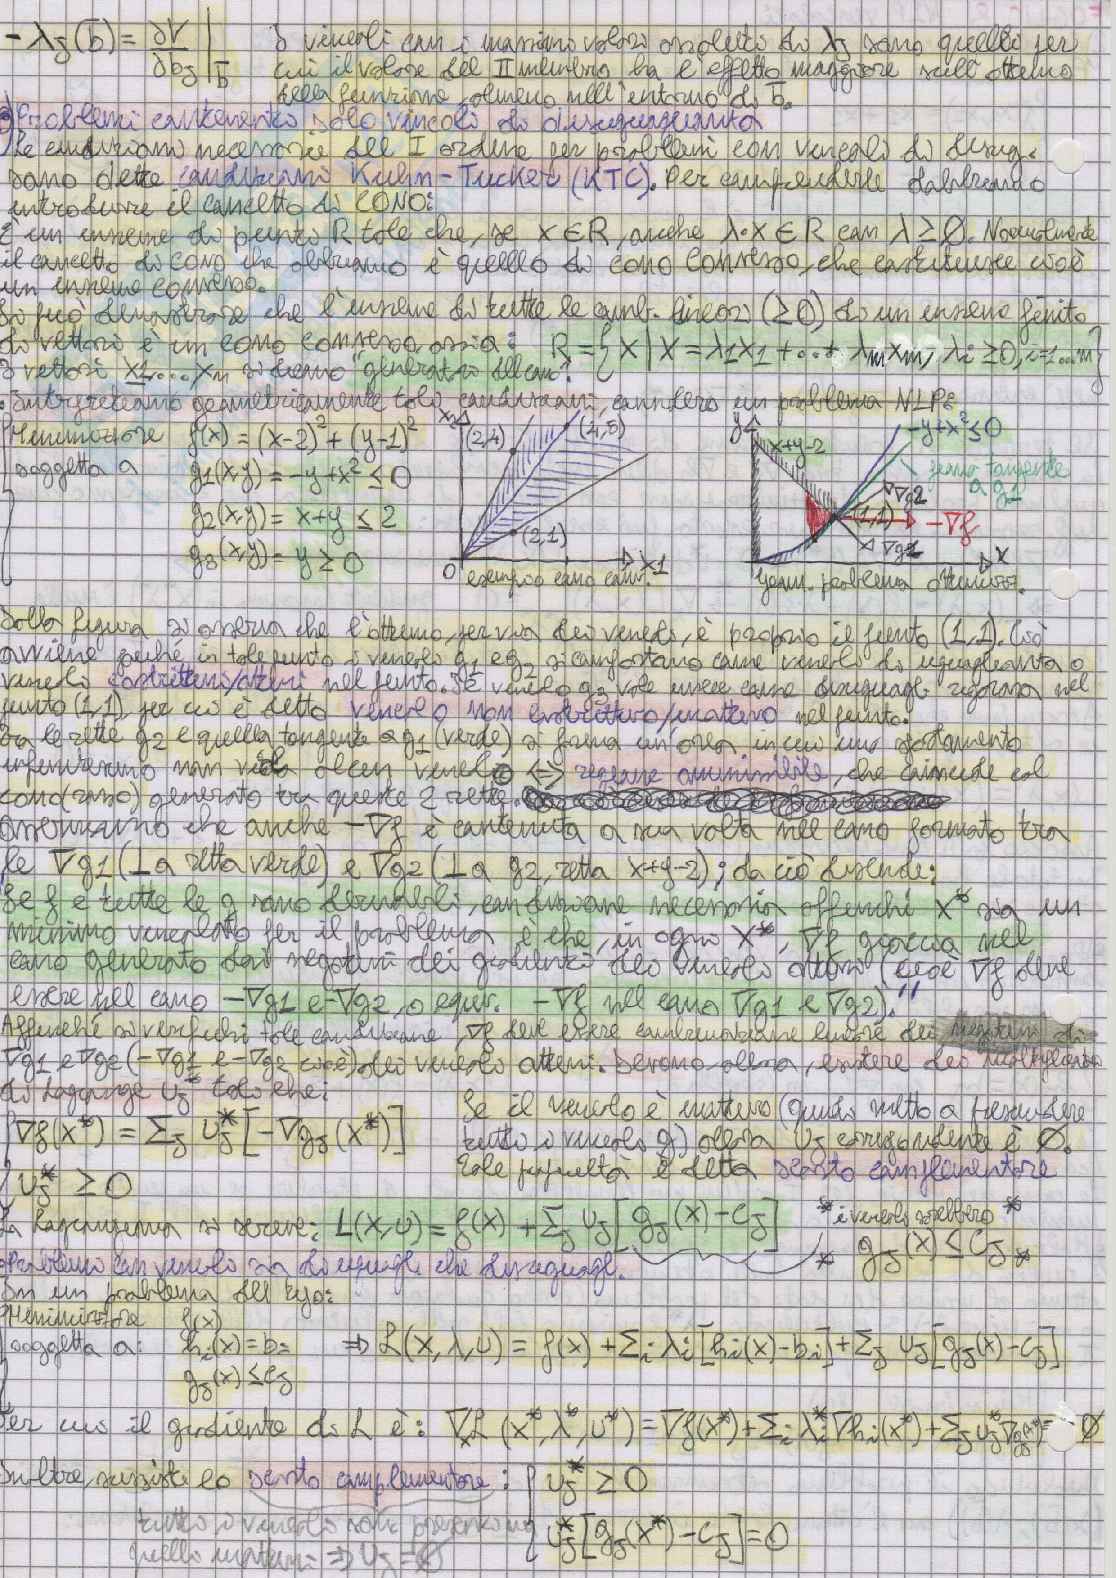 -λj(b̄) = ∂V/∂bj |b̄
I vincoli con i massimi valori assoluti di λj sono quelli per
cui il valore del II membro ha l'effetto maggiore sull'ottimo
della funzione, almeno nell'intorno di b̄.
Problemi contenenti solo vincoli di disuguaglianza
Le condizioni necessarie del I ordine per problemi con vincoli di disug.
sono dette condizioni Kuhn-Tucker (KTC). Per comprenderle dobbiamo
introdurre il concetto di CONO:
È un insieme di punti R tale che, se x∈R, anche λ·x∈R con λ≥0. Normalmente
il concetto di cono che abbiamo è quello di cono convesso, che costituisce cioè
un insieme convesso.
Si può dimostrare che l'insieme di tutte le comb. lineari (≥0) di un insieme finito
di vettori è un cono convesso, ossia: R={x | x=λ1x1+...+λmxm, λi≥0, i=1...m}
I vettori x1,...,xm si dicono "generatori del cono".
Interpretiamo geometricamente tali condizioni, considero un problema NLP:
Minimizzare f(x) = (x-2)²+(y-1)²
soggetta a g1(x,y) = -y+x² ≤0
g2(x,y) = x+y ≤ 2
g3(x,y) = y ≥ 0
x2
(2,4)
(4,5)
(2,1)
0
x1
esempio cono conv.
y
x+y-2
-y+x²≤0
piano tangente
a g1
∇g2
(1,1)
-∇f
∇g1
x
geom. problema ottimizz.
Dalla figura si osserva che l'ottimo, per via dei vincoli, è proprio il punto (1,1). Ciò
avviene poiché in tale punto i vincoli g1 e g2 si comportano come vincoli di uguaglianza o
vincoli costrittivi/attivi nel punto. Il vincolo g3 vale invece come disuguagl. rigorosa nel
punto (1,1), per cui è detto vincolo non costrittivo/inattivo nel punto.
Tra le rette g2 e quella tangente a g1 (verde) si forma un'area in cui uno spostamento
infinitesimo non viola alcun vincolo <=> regione ammissibile, che coincide col
cono (rosso) generato tra queste 2 rette.
Osserviamo che anche -∇f è contenuta a sua volta nel cono formato tra
le ∇g1 (⊥ a retta verde) e ∇g2 (⊥ a g2, retta x+y-2); da ciò discende:
"Se f e tutte le g sono derivabili, condizione necessaria affinché x* sia un
minimo vincolato per il problema è che, in ogni x*, ∇f giaccia nel
cono generato dai negativi dei gradienti dei vincoli attivi (cioè ∇f deve
essere nel cono -∇g1 e -∇g2, o equiv. -∇f nel cono ∇g1 e ∇g2)."
Affinché si verifichi tale condizione, ∇f deve essere combinazione lineare dei negativi di
∇g1 e ∇g2 (-∇g1 e -∇g2 cioè) dei vincoli attivi. Devono, allora, esistere dei moltiplicatori
di Lagrange uj* tali che:
∇f(x*) = Σj uj*[-∇gj(x*)]
uj* ≥ 0
Se il vincolo è inattivo (quindi rispetto a
tutti i vincoli g) allora uj corrispondente è 0.
Tale proprietà è detta scarto complementare
La Lagrangiana si scrive: L(x,u) = f(x) + Σj uj[gj(x)-cj]
* i vincoli sarebbero *
* gj(x) ≤ cj *
Problemi con vincoli sia di uguagl. che disuguagl.
In un problema del tipo:
Minimizzare f(x)
soggetta a: hi(x)=bi ⇒ L(x,λ,u) = f(x) + Σi λi[hi(x)-bi] + Σj uj[gj(x)-cj]
gj(x) ≤ cj
Per cui il gradiente di L è: ∇xL(x*,λ*,u*) = ∇f(x*) + Σi λi*∇hi(x*) + Σj uj*∇gj(x*) = 0
Inoltre, sussiste lo scarto complementare: uj* ≥ 0
tutti i vincoli sono presenti ma
quelli inattivi ⇒ uj=0
uj*[gj(x*)-cj]=0